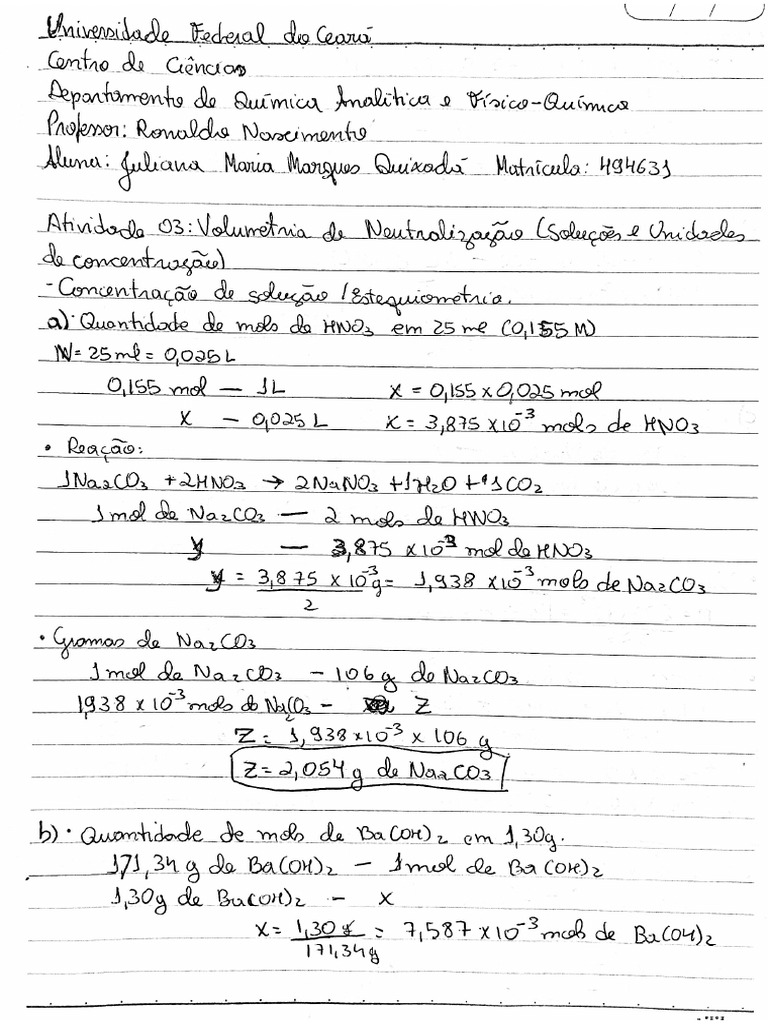 Universidade Federal do Ceará
Centro de Ciências
Departamento de Química Analítica e Físico-Química
Professor: Ronaldo Nascimento
Aluna: Juliana Maria Marques Quixadá Matrícula: 494631
Atividade 03: Volumetria de Neutralização (Soluções e Unidades
de concentração)
- Concentração de solução / Estequiometria.
a) · Quantidade de mols de HNO3 em 25 ml (0,155 M)
V = 25 ml = 0,025 L
0,155 mol — 1L x = 0,155 x 0,025 mol
x — 0,025 L x = 3,875 x 10⁻³ mols de HNO3
• Reação:
1Na2CO3 + 2HNO3 → 2NaNO3 + 1H2O + 1CO2
1 mol de Na2CO3 — 2 mols de HNO3
y — 3,875 x 10⁻³ mol de HNO3
y = 3,875 x 10⁻³ g = 1,938 x 10⁻³ mols de Na2CO3
2
• Gramas de Na2CO3
1 mol de Na2CO3 — 106 g de Na2CO3
1,938 x 10⁻³ mols de Na2CO3 — Z
Z = 1,938 x 10⁻³ x 106 g
Z = 2,054 g de Na2CO3
b) · Quantidade de mols de Ba(OH)2 em 1,30g.
171,34 g de Ba(OH)2 — 1 mol de Ba(OH)2
1,30g de Ba(OH)2 — x
x = 1,30 g = 7,587 x 10⁻³ mols de Ba(OH)2
171,34g